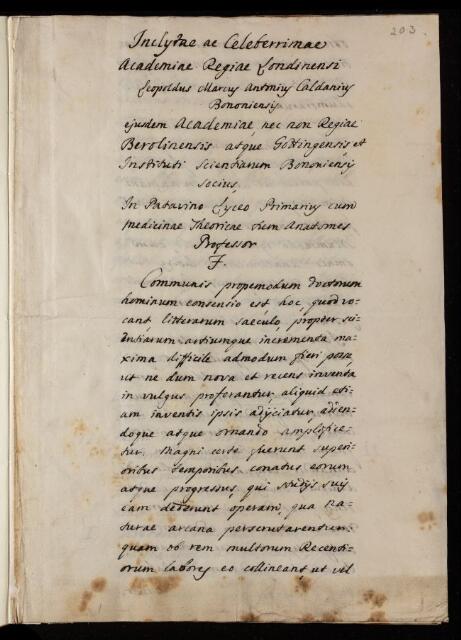 203.
Inclytae ac Celeberrimae
Academiae Regiae Londinensi
Leopoldus Marcus Antonius Caldanius
Bononiensis
ejusdem Academiae, nec non Regiae
Berolinensis atque Gottingensis et
Instituti Scientiarum Bononiensis
socius,
In Patavino Lyceo Primarius cum
Medicinae Theoricae tum Anatomes
Professor
F.
Communis propemodum doctorum
hominum consensio est hoc, quod vo=
cant litterarum saeculo, propter sci=
entiarum artiumque incrementa ma=
xima difficile admodum fieri posse
ut ne dum nova et recens inventa
in vulgus proferantur, aliquid eti=
am inventis ipsis adijciatur adden=
doque atque ornando amplifice=
tur. Magni certe fuerunt superi=
oribus temporibus conatus eorum
atque progressus, qui studijs suis
eam dederunt operam, qua na=
turae arcana perscrutarentur:
quam ob rem multorum Recenti=
orum labores eo collineant, ut vel